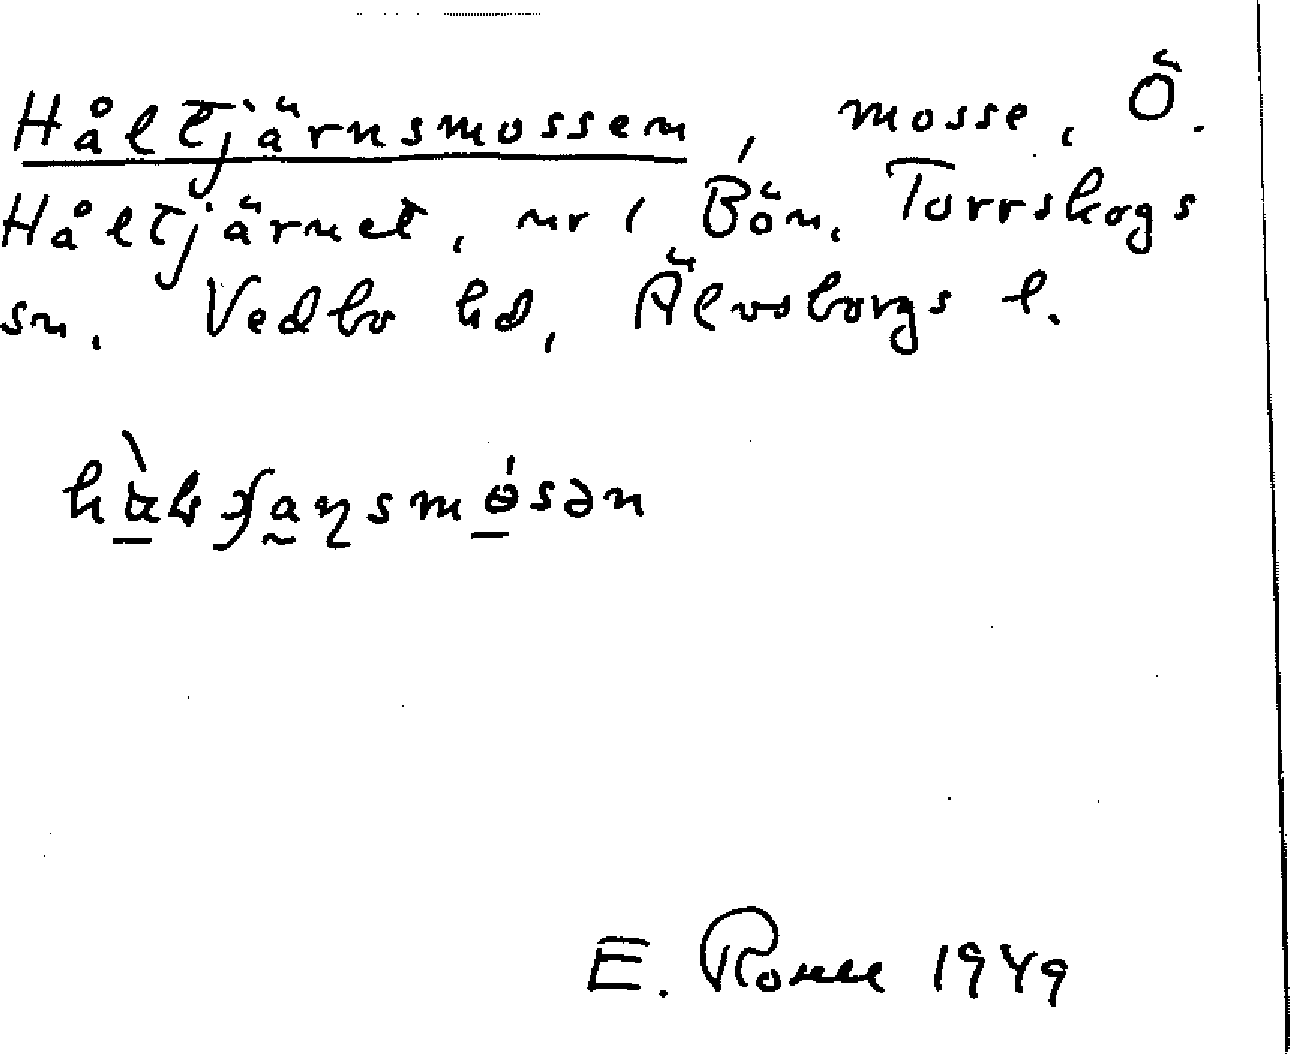 Håltjärnsmossen, mosse, Ö.
Håltjärnet, nr 1 Bön, Torrskogs
sn, Vedbo hd, Älvsborgs l.
E. Rome 1949